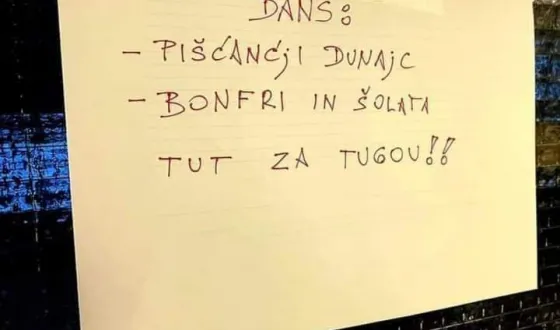 DANS:
- PIŠĆANĆJI DUNAJC
- BONFRI IN ŠOLATA
TUT ZA TUGOU!!